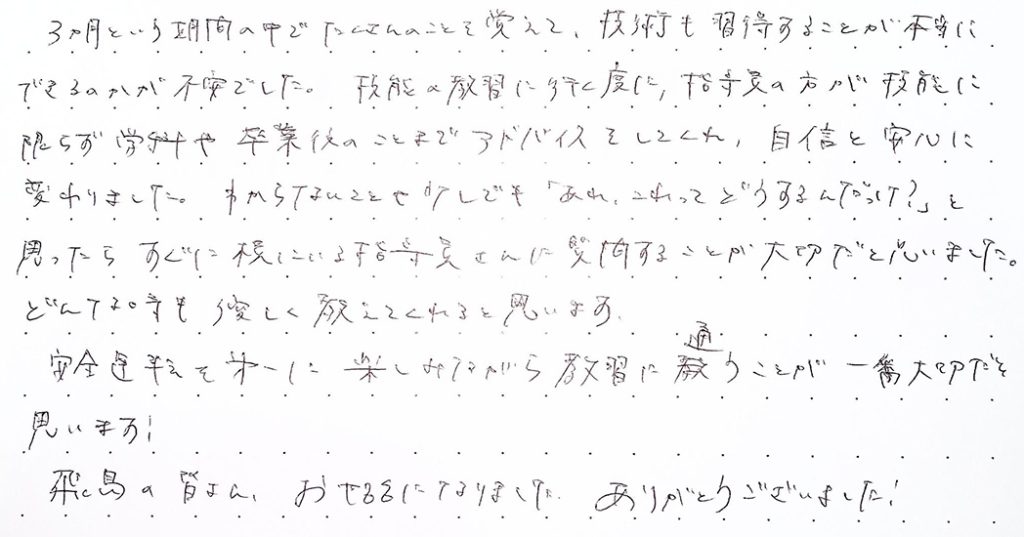 3ヵ月という期間の中でたくさんのことを覚えて、技術も習得することが本当に
できるのかが不安でした。技能の教習に行く度に、指導員の方が技能に
限らず学科や卒業後のことまでアドバイスをしてくれ、自信と安心に
変わりました。わからないことや少しでも「あれ、これってどうするんだっけ?」と
思ったらすぐに横にいる指導員さんに質問することが大切だと思いました。
どんな時も優しく教えてくれると思います。
安全運転を第一に楽しみながら教習に通うことが一番大切だと
思います!
飛鳥の皆さん、お世話になりました。ありがとうございました!